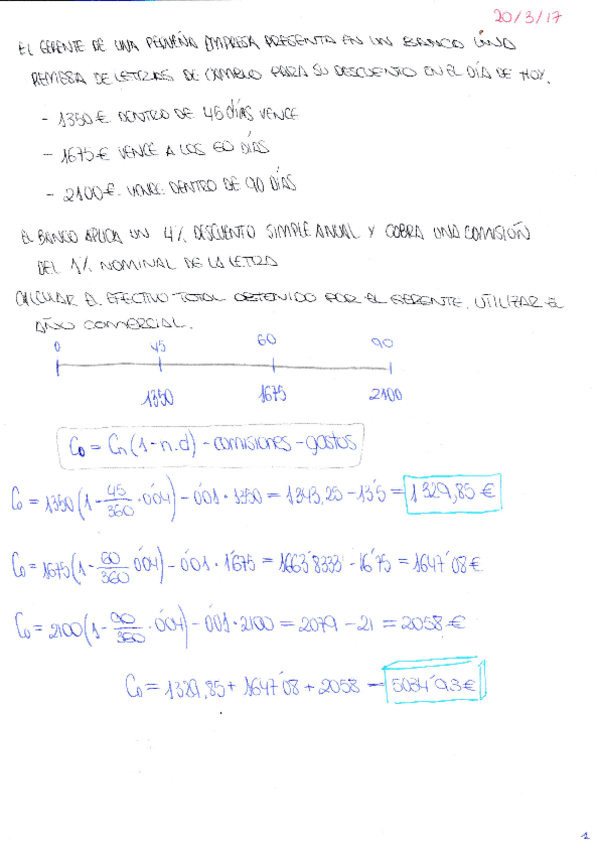 20/3/17
EL GERENTE DE UNA PEQUEÑA EMPRESA PRESENTA EN UN BANCO UNA
REMESA DE LETRAS DE CAMBIO PARA SU DESCUENTO EN EL DÍA DE HOY.
- 1350€ DENTRO DE 45 días VENCE
- 1675€ VENCE A LOS 60 DÍAS
- 2100€. VENCE DENTRO DE 90 DÍAS
EL BANCO APLICA UN 4% DESCUENTO SIMPLE ANUAL Y COBRA UNA COMISIÓN
DEL 1% NOMINAL DE LA LETRA
CALCULAR EL EFECTIVO TOTAL OBTENIDO POR EL GERENTE. UTILIZAR EL
AÑO COMERCIAL.
0 45 60 90
1350 1675 2100
C₀ = Cn (1 - n.d) - comisiones - gastos
C₀ = 1350 (1 - 45/360 · 0'04) - 0'01 · 1350 = 1343,25 - 13'5 = 1329,85 €
C₀ = 1675 (1 - 60/360 0'04) - 0'01 · 1675 = 1663'8333 - 16'75 = 1647'08 €.
C₀ = 2100 (1 - 90/360 · 0'04) - 0'01 · 2100 = 2079 - 21 = 2058 €
C₀ = 1329,85 + 1647'08 + 2058 = 5034'93 €
1